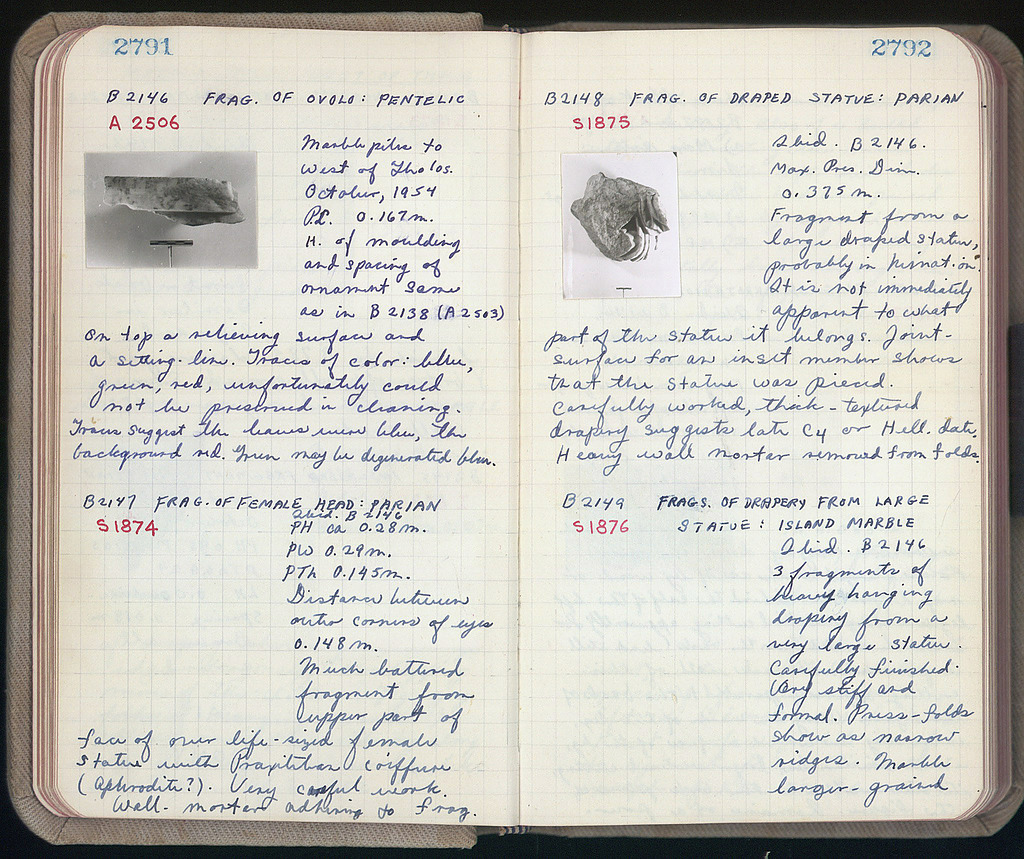 2791
B 2146 FRAG. OF OVOLO: PENTELIC
A 2506
Marble piles to
west of Tholos.
October, 1954
P.L. 0.167 m.
H. of moulding
and spacing of
ornament same
as in B 2138 (A 2503)
On top a relieving surface and
a setting-line. Traces of color: blue,
green, red, unfortunately could
not be preserved in cleaning.
Traces suggest the leaves were blue, the
background red. Green may be degenerated blue.
B 2147 FRAG. OF FEMALE HEAD: PARIAN
S 1874
Ibid. B 2146
PH ca 0.28 m.
PW 0.29 m.
PTh 0.145 m.
Distance between
outer corners of eyes
0.148 m.
Much battered
fragment from
upper part of
face of over life-sized female
statue with Praxitelean coiffure
(Aphrodite?). Very careful work.
Wall-mortar adhering to frag.
2792
B 2148 FRAG. OF DRAPED STATUE: PARIAN
S 1875
Ibid. B 2146.
Max. Pres. Dim.
0.375 m.
Fragment from a
large draped statue,
probably in himation.
It is not immediately
apparent to what
part of the statue it belongs. Joint-
surface for an inset member shows
that the statue was pieced.
Carefully worked, thick-textured
drapery suggests late C4 or Hell. date.
Heavy wall mortar removed from folds.
B 2149 FRAGS. OF DRAPERY FROM LARGE
S 1876 STATUE: ISLAND MARBLE
Ibid. B 2146
3 fragments of
heavy hanging
drapery from a
very large statue.
Carefully finished.
Very stiff and
formal. Press-folds
show as narrow
ridges. Marble
larger-grained